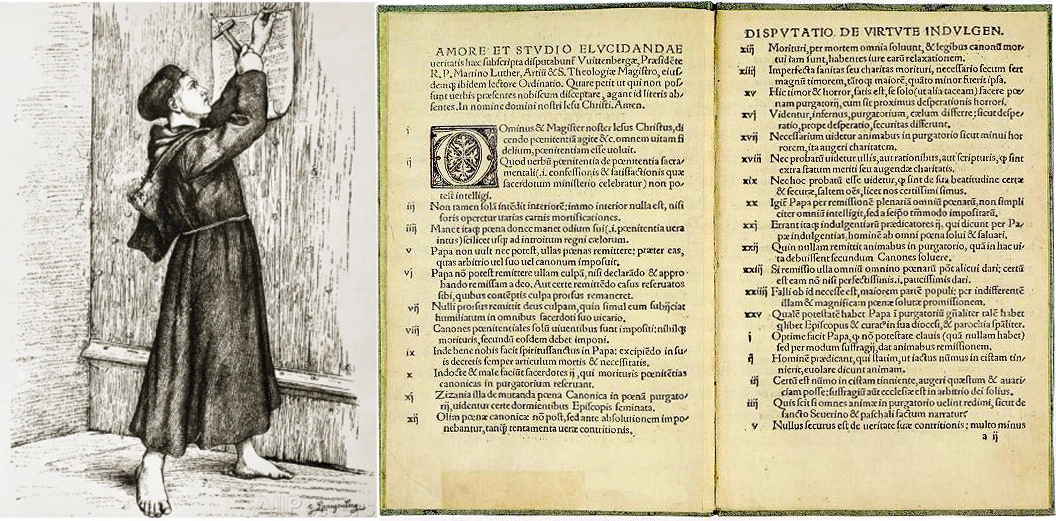 AMORE ET STVDIO ELVCIDANDAE
ueritatis hæc subscripta disputabunť Vuittenbergæ, Præsidēte
R. P. Martino Luther, Artiū & S. Theologiæ Magistro, eius-
demq; ibidem lectore Ordinatio. Quare petit ut qui non pos-
sunt uerbis præsentes nobiscum disceptare, agant id literis ab-
sentes. In nomine domini nostri Iesu Christi. Amen.
i Ominus & Magister noster Iesus Christus, di
cendo pœnitentiā agite &c. omnem uitam fi
delium, pœnitentiam esse uoluit.
ij Quod uerbū pœnitentia de pœnitentia sacra-
mentali(.i. confessionis & satisfactionis quæ
sacerdotum ministerio celebratur) non po-
test intelligi.
iij Non tamen solā intēdit interiorē; immo interior nulla est, nisi
foris operetur uarias carnis mortificationes.
iiij Manet itaq; pœna donec manet odium sui(.i. pœnitentia uera
intus) scilicet usq; ad introitum regni cælorum.
v Papa non uult nec potest, ullas pœnas remittere; præter eas,
quas arbitrio uel suo uel canonum imposuit.
vj Papa nō potest remittere ullam culpā, nisi declarādo & appro-
bando remissam a deo. Aut certe remittēdo casus reseruatos
sibi, quibus contēptis culpa prorsus remaneret.
vij Nulli prorsus remittit deus culpam, quin simul eum subijciat
humiliatum in omnibus sacerdoti suo uicario.
viij Canones pœnitentiales solū uiuentibus sunt impositi; nihilq;
morituris, secundū eosdem debet imponi.
ix Inde bene nobis facit spiritussanctus in Papa; excipiēdo in su-
is decretis semper articulum mortis & necessitatis.
x Indocte & male faciūt sacerdotes ij, qui morituris pœnitētias
canonicas in purgatorium reseruant.
xj Zizania illa de mutanda pœna Canonica in pœnā purgato-
rij, uidentur certe dormientibus Episcopis seminata.
xij Olim pœnæ canonicæ nō post, sed ante absolutionem impo-
nebantur, tanq̄ tentamenta ueræ contritionis.
DISPVTATIO DE VIRTVTE INDVLGEN.
xiij Morituri, per mortem omnia soluunt, & legibus canonū mor-
tui iam sunt, habentes iure earū relaxationem.
xiiij Imperfecta sanitas seu charitas morituri, necessario secum fert
magnū timorem, tātoq; maiorē, quāto minor fuerit ipsa.
xv Hic timor & horror, satis est, se solo (ut alia taceam) facere pœ-
nam purgatorij, cum sit proximus desperationis horrori.
xvj Videntur, infernus, purgatorium, cælum differre; sicut despe-
ratio, prope desperatio, securitas differunt.
xvij Necessarium uidetur animabus in purgatorio sicut minui hor
rorem, ita augeri charitatem.
xviij Nec probatū uidetur ullis, aut rationibus, aut scripturis, q̄ sint
extra statum meriti seu augendæ charitatis.
xix Nec hoc probatū esse uidetur, q̄ sint de sua beatitudine certæ
& securæ, saltem oēs, licet nos certissimi simus.
xx Igit̄ Papa per remissionē plenariā omniū pœnarū, non simpli
citer omniū intelligit, sed a seipō tm̄modo impositarū.
xxj Errant itaq; indulgentiarū prædicatores ij, qui dicunt per Pa-
pæ indulgentias, hominē ab omni pœna solui & saluari.
xxij Quin nullam remittit animabus in purgatorio, quā in hac ui-
ta debuissent secundum Canones soluere.
xxiij Si remissio ulla omniū omnino pœnarū pōt alicui dari; certū
est eam nō nisi perfectissimis .i. paucissimis dari.
xxiiij Falli ob id necesse est, maiorem partē populi; per indifferentē
illam & magnificam pœnæ solutæ promissionem.
xxv Qualē potestatē habet Papa ī purgatoriū gn̄aliter talē habet
q̄libet Episcopus & curat⁹ in sua diocesi, & parochia sp̄aliter.
i Optime facit Papa, q̄ nō potestate clauis (quā nullam habet)
sed per modum suffragij, dat animabus remissionem.
ij Hominē prædicant, qui statim, ut iactus nūmus in cistam tin-
nierit, euolare dicunt animam.
iij Certū est nūmo in cistam tinniente, augeri quæstum & auari-
ciam posse; suffragiū aūt ecclesiæ est in arbitrio dei solius.
iiij Quis scit si omnes animæ in purgatorio uelint redimi, sicut de
sancto Seuerino & paschali factum narratur
v Nullus securus est de ueritate suæ contritionis; multo minus
a ij